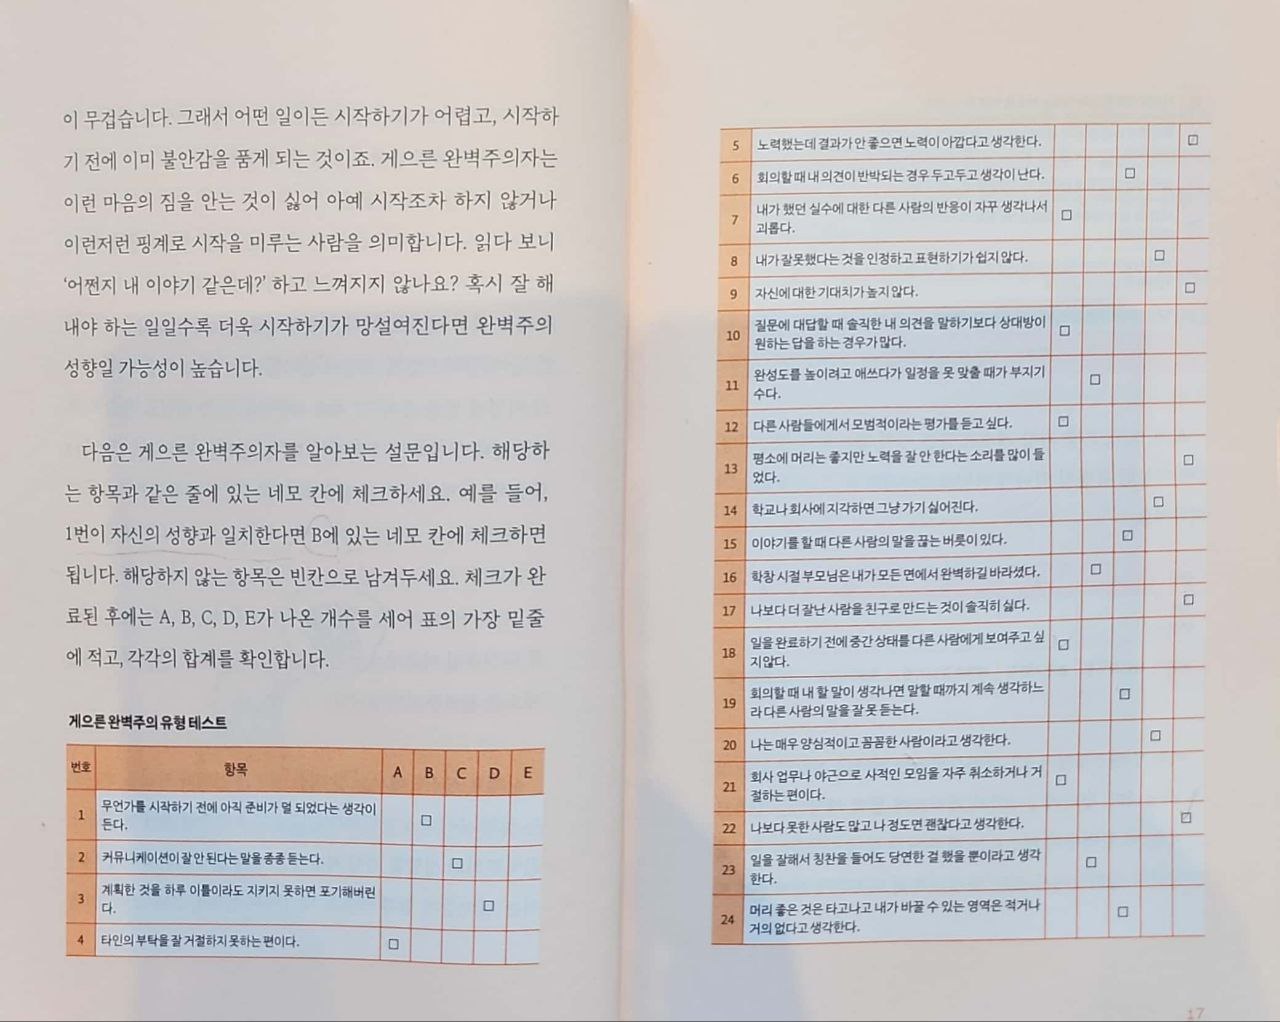 이 무겁습니다. 그래서 어떤 일이든 시작하기가 어렵고, 시작하
기 전에 이미 불안감을 품게 되는 것이죠. 게으른 완벽주의자는
이런 마음의 짐을 안는 것이 싫어 아예 시작조차 하지 않거나
이런저런 핑계로 시작을 미루는 사람을 의미합니다. 읽다 보니
‘어쩐지 내 이야기 같은데?’ 하고 느껴지지 않나요? 혹시 잘 해
내야 하는 일일수록 더욱 시작하기가 망설여진다면 완벽주의
성향일 가능성이 높습니다.
다음은 게으른 완벽주의자를 알아보는 설문입니다. 해당하
는 항목과 같은 줄에 있는 네모 칸에 체크하세요. 예를 들어,
1번이 자신의 성향과 일치한다면 B에 있는 네모 칸에 체크하면
됩니다. 해당하지 않는 항목은 빈칸으로 남겨두세요. 체크가 완
료된 후에는 A, B, C, D, E가 나온 개수를 세어 표의 가장 밑줄
에 적고, 각각의 합계를 확인합니다.
게으른 완벽주의 유형 테스트
번호 항목 A B C D E
1 무언가를 시작하기 전에 아직 준비가 덜 되었다는 생각이
든다.
2 커뮤니케이션이 잘 안 된다는 말을 종종 듣는다.
3 계획한 것을 하루 이틀이라도 지키지 못하면 포기해버린
다.
4 타인의 부탁을 잘 거절하지 못하는 편이다.
5 노력했는데 결과가 안 좋으면 노력이 아깝다고 생각한다.
6 회의할 때 내 의견이 반박되는 경우 두고두고 생각이 난다.
7 내가 했던 실수에 대한 다른 사람의 반응이 자꾸 생각나서
괴롭다.
8 내가 잘못했다는 것을 인정하고 표현하기가 쉽지 않다.
9 자신에 대한 기대치가 높지 않다.
10 질문에 대답할 때 솔직한 내 의견을 말하기보다 상대방이
원하는 답을 하는 경우가 많다.
11 완성도를 높이려고 애쓰다가 일정을 못 맞출 때가 부지기
수다.
12 다른 사람들에게서 모범적이라는 평가를 듣고 싶다.
13 평소에 머리는 좋지만 노력을 잘 안 한다는 소리를 많이 들
었다.
14 학교나 회사에 지각하면 그냥 가기 싫어진다.
15 이야기를 할 때 다른 사람의 말을 끊는 버릇이 있다.
16 학창 시절 부모님은 내가 모든 면에서 완벽하길 바라셨다.
17 나보다 더 잘난 사람을 친구로 만드는 것이 솔직히 싫다.
18 일을 완료하기 전에 중간 상태를 다른 사람에게 보여주고 싶
지 않다.
19 회의할 때 내 할 말이 생각나면 말할 때까지 계속 생각하느
라 다른 사람의 말을 잘 못 듣는다.
20 나는 매우 양심적이고 꼼꼼한 사람이라고 생각한다.
21 회사 업무나 야근으로 사적인 모임을 자주 취소하거나 거
절하는 편이다.
22 나보다 못한 사람도 많고 나 정도면 괜찮다고 생각한다.
23 일을 잘해서 칭찬을 들어도 당연한 걸 했을 뿐이라고 생각
한다.
24 머리 좋은 것은 타고나고 내가 바꿀 수 있는 영역은 적거나
거의 없다고 생각한다.
17